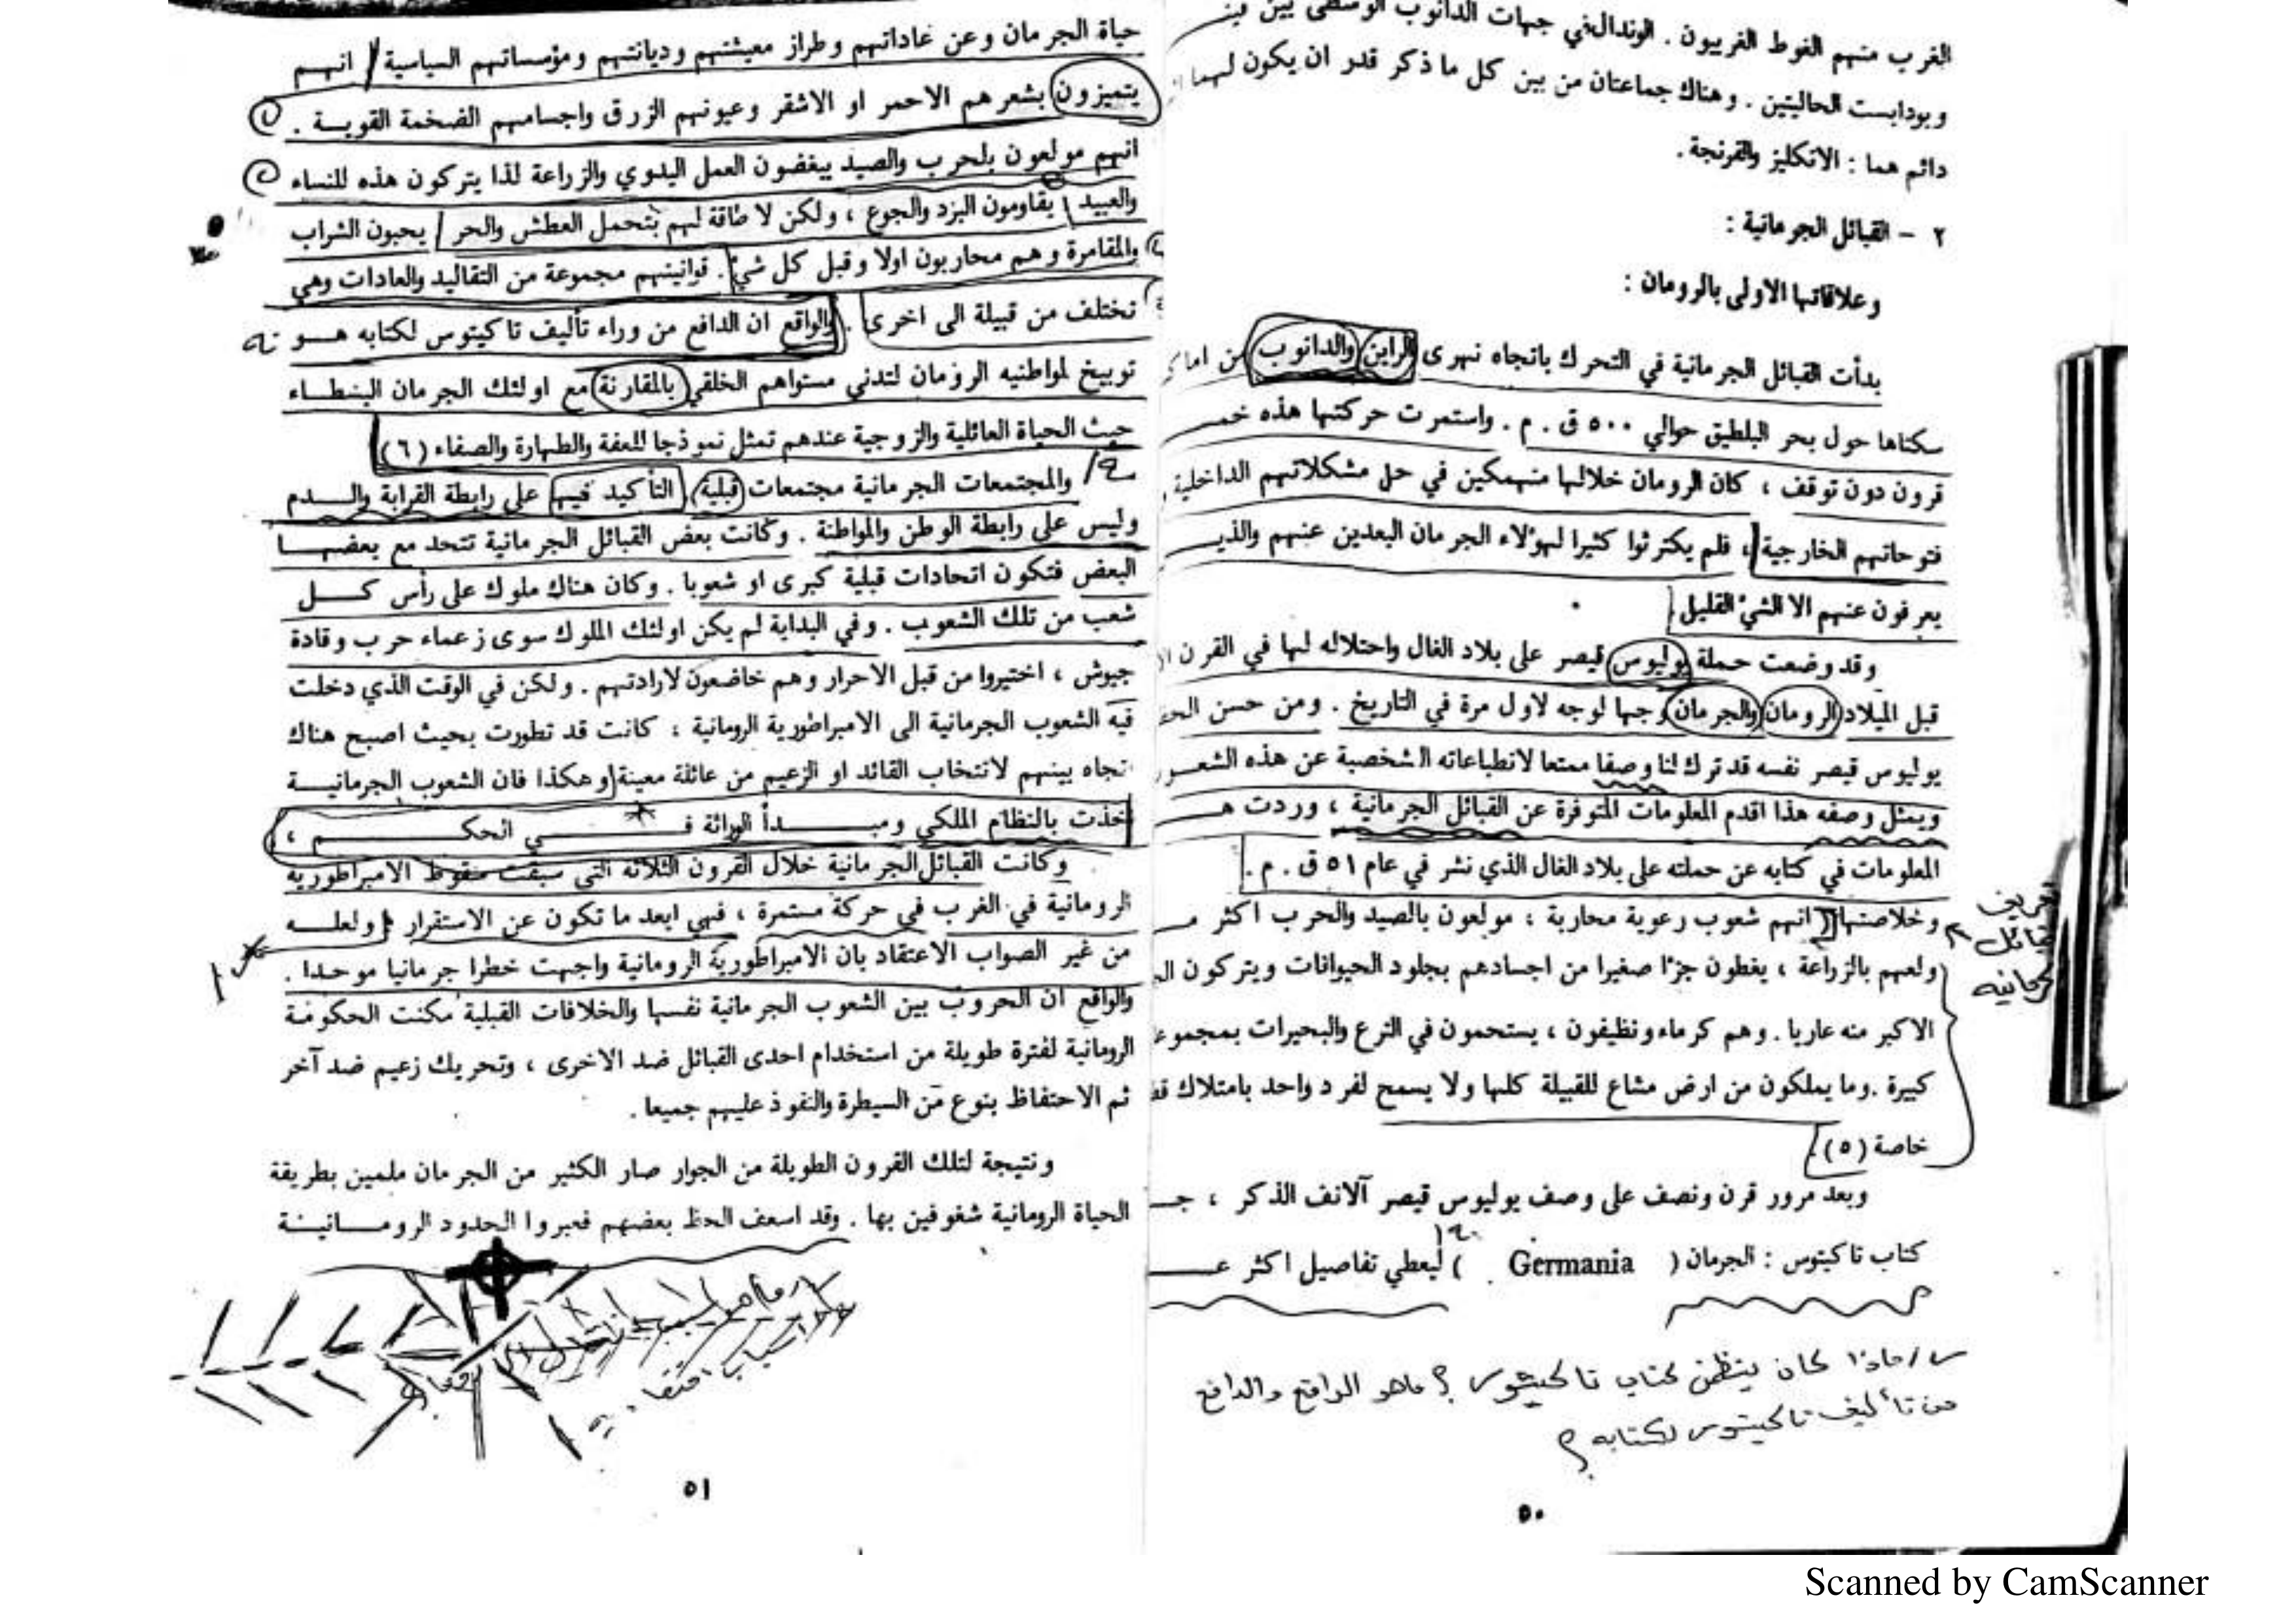 الغرب منهم القوط الغربيون . الوندال في جهات الدانوب الوسطى بين
وبودابست الحاليتين . وهناك جماعتان من بين كل ما ذكر قدر ان يكون لهما
دائم هما : الانكليز والفرنجة .
٢ – القبائل الجرمانية :
وعلاقاتها الاولى بالرومان :
بدأت القبائل الجرمانية في التحرك باتجاه نهرى الراين والدانوب من
سكناها حول بحر البلطيق حوالي ٥٠٠ ق . م . واستمرت حركتها هذه
قرون دون توقف ، كان الرومان خلالها منهمكين في حل مشكلاتهم الداخلية
فتوحاتهم الخارجية ، فلم يكترثوا كثيرا لهؤلاء الجرمان البعدين عنهم
يعرفون عنهم الا الشيء القليل
وقد وضعت حملة يوليوس قيصر على بلاد الغال واحتلاله لها في القرن
قبل الميلاد الرومان والجرمان وجها لوجه لاول مرة في التاريخ . ومن حسن
يوليوس قيصر نفسه قد ترك لنا وصفا ممتعا لانطباعاته الشخصية عن هذه
ويمثل وصفه هذا اقدم المعلومات المتوفرة عن القبائل الجرمانية ، وردت
المعلومات في كتابه عن حملته على بلاد الغال الذي نشر في عام ٥١ ق . م .
وخلاصتها انهم شعوب رعوية محاربة ، مولعون بالصيد والحرب اكثر
ولعهم بالزراعة ، يغطون جزءا صغيرا من اجسادهم بجلود الحيوانات ويتركون
الاكبر منه عاريا . وهم كرماء ونظيفون ، يستحمون في الترع والبحيرات
كبيرة . وما يملكون من ارض مشاع للقبيلة كلها ولا يسمح لفرد واحد بامتلاك
خاصة (٥)
وبعد مرور قرن ونصف على وصف يوليوس قيصر آلانف الذكر ،
كتاب تاكيتوس : الجرمان ( Germania ) ليعطي تفاصيل اكثر
س/ ماذا كان يتظمن كتاب تاكيتوس ؟ ماهو الواقع والدافع
من تأليف تاكيتوس لكتابه ؟
٥٠
حياة الجرمان وعن عاداتهم وطراز معيشتهم وديانتهم ومؤسساتهم السياسية / انهم
يتميزون بشعرهم الاحمر او الاشقر وعيونهم الزرق واجسامهم الضخمة القوية .
انهم مولعون بلحرب والصيد يبغضون العمل اليدوي والزراعة لذا يتركون هذه للنساء
والعبيد يقاومون البرد والجوع ، ولكن لا طاقة لهم بتحمل العطش والحر / يحبون الشراب
والمقامرة وهم محاربون اولا وقبل كل شيء . قوانينهم مجموعة من التقاليد والعادات وهي
تختلف من قبيلة الى اخرى . والواقع ان الدافع من وراء تأليف تاكيتوس لكتابه هو
توبيخ لمواطنيه الرومان لتدني مستواهم الخلقي بالمقارنة مع اولئك الجرمان البسطاء
حيث الحياة العائلية والزوجية عندهم تمثل نموذجا للعفة والطهارة والصفاء (٦)
والمجتمعات الجرمانية مجتمعات قبلية ، التأكيد فيها على رابطة القرابة والدم
وليس على رابطة الوطن والمواطنة . وكانت بعض القبائل الجرمانية تتحد مع بعضها
البعض فتكون اتحادات قبلية كبرى او شعوبا . وكان هناك ملوك على رأس كل
شعب من تلك الشعوب . وفي البداية لم يكن اولئك الملوك سوى زعماء حرب وقادة
جيوش ، اختيروا من قبل الاحرار وهم خاضعون لارادتهم . ولكن في الوقت الذي دخلت
فيه الشعوب الجرمانية الى الامبراطورية الرومانية ، كانت قد تطورت بحيث اصبح هناك
تجاه بينهم لانتخاب القائد او الزعيم من عائلة معينة وهكذا فان الشعوب الجرمانية
خذت بالنظام الملكي ومبدأ الوراثة في الحكم ،
وكانت القبائل الجرمانية خلال القرون الثلاثة التي سبقت سقوط الامبراطورية
الرومانية في الغرب في حركة مستمرة ، فهي ابعد ما تكون عن الاستقرار ، ولعله
من غير الصواب الاعتقاد بان الامبراطورية الرومانية واجهت خطرا جرمانيا موحدا .
والواقع ان الحروب بين الشعوب الجرمانية نفسها والخلافات القبلية مكنت الحكومة
الرومانية لفترة طويلة من استخدام احدى القبائل ضد الاخرى ، وتحريك زعيم ضد آخر
ثم الاحتفاظ بنوع من السيطرة والنفوذ عليهم جميعا .
ونتيجة لتلك القرون الطويلة من الجوار صار الكثير من الجرمان ملمين بطريقة
الحياة الرومانية شغوفين بها . وقد اسعف الحظ بعضهم فعبروا الحدود الرومانية
٥١
Scanned by CamScanner